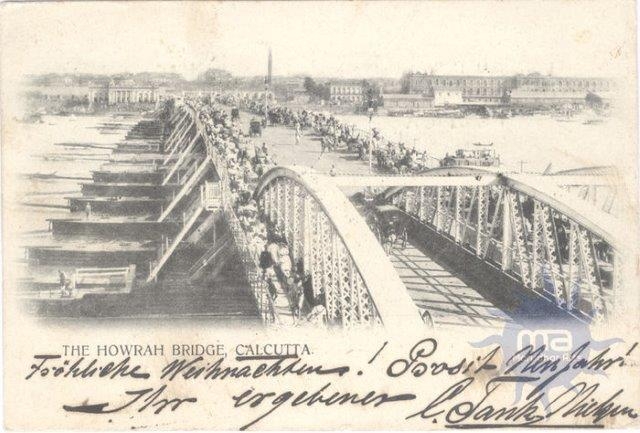 THE HOWRAH BRIDGE, CALCUTTA.
Fröhliche Weihnachten! Prosit Neujahr!
Ihr ergebener
ma